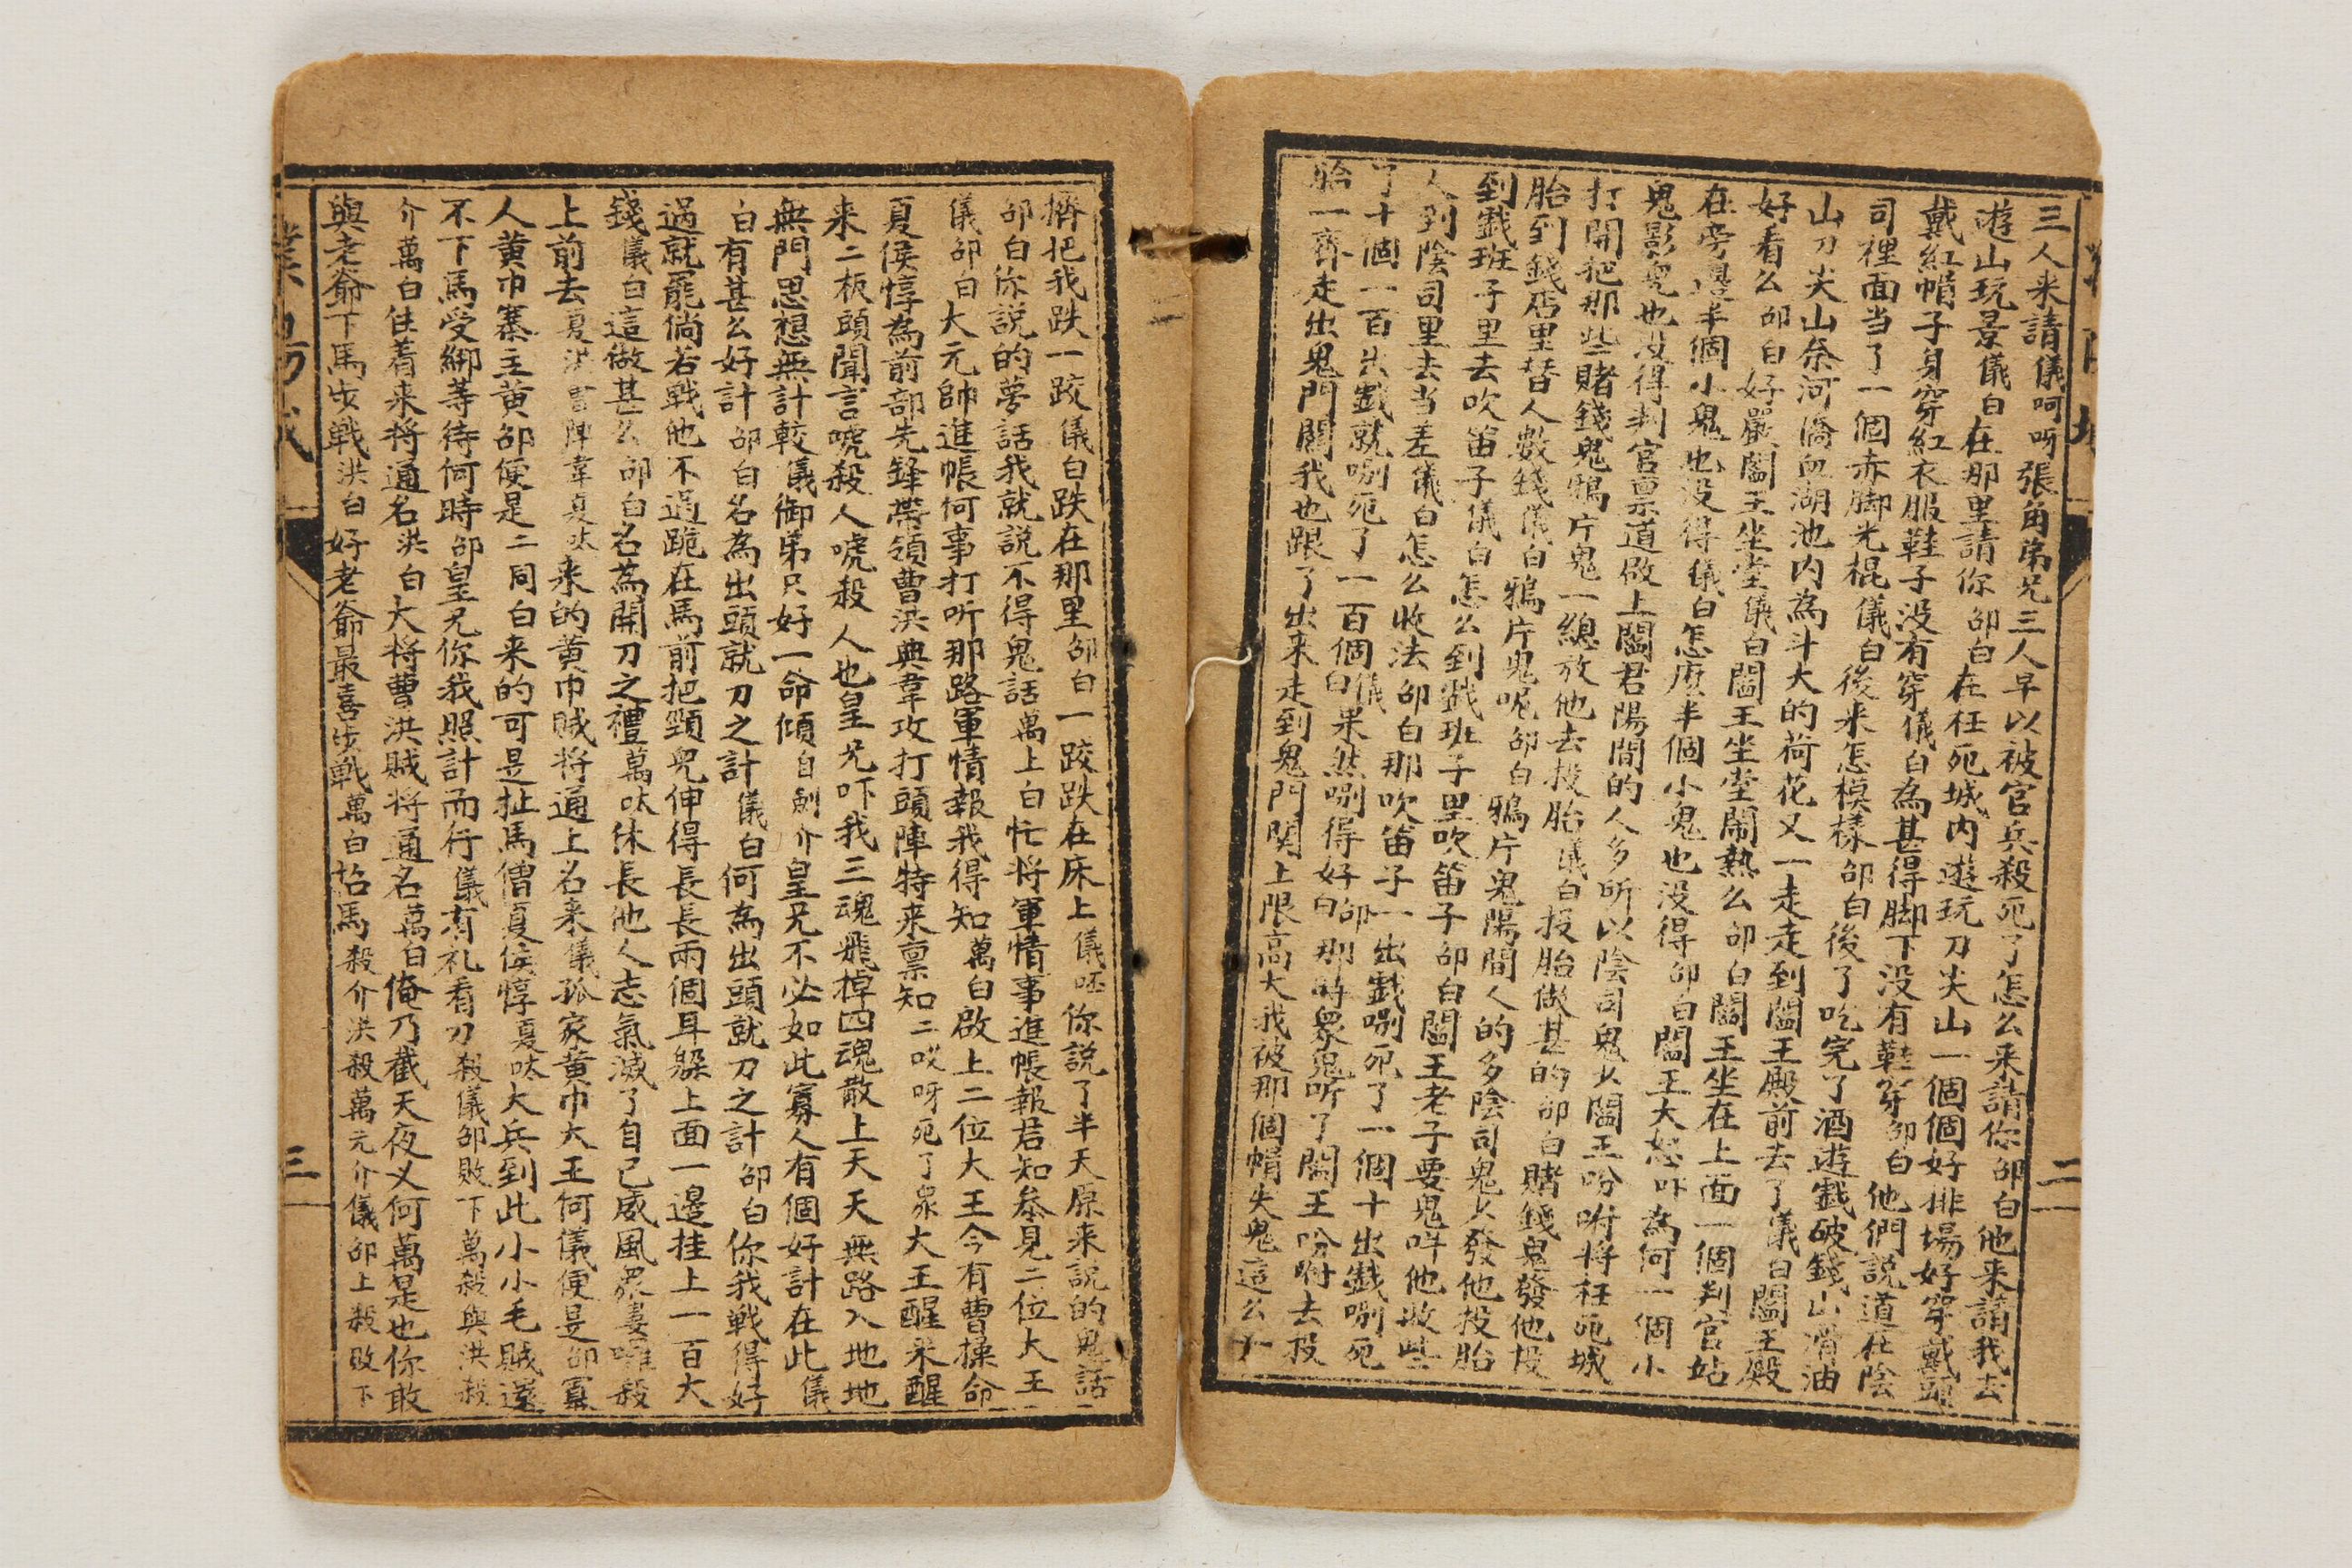 三人来請儀呵呀張角弟兄三人早以被官兵殺死了怎么来請你邵白他来請我去
遊山玩景儀白在那里請你邵白在枉死城内遊玩刀尖山一個個好排場好穿戴頭
戴紅帽子身穿紅衣服鞋子没有穿儀白為甚得脚下没有鞋穿邵白他們説道在陰
司裡面当了一個赤脚光棍儀白後来怎模樣邵白後了吃完了酒遊戯破錢山滑油
山刀尖山奈河橋血湖池内為斗大的荷花又一走走到閻王殿前去了儀白閻王殿
好看么邵白好嚴閻王坐堂儀白閻王坐堂鬧熱么邵白閻王坐在上面一個判官站
在旁邊半個小鬼也没得儀白怎麽半個小鬼也没得邵白閻王大怒吓為何一個小
鬼影兒也没得判官禀道啟上閻君陽間的人多所以陰司鬼火閻王吩咐将枉死城
打開把那些賭錢鬼鴉片鬼一總放他去投胎儀白投胎做甚的邵白賭錢鬼發他投
胎到錢店里替人數錢儀白鴉片鬼呢邵白鴉片鬼陽間人的多陰司鬼火發他投胎
到戯班子里去吹笛子儀白怎么到戯班子里吹笛子邵白閻王老子要鬼呌他收些
人到陰司里去当差儀白怎么收法邵白那吹笛子一出戯唎死了一個十出戯唎死
了十個一百出戯就唎死了一百個儀白果然唎得好邵白那時衆鬼听了閻王吩咐去投
胎一齊走出鬼門關我也跟了出来走到鬼門関上限高大我被那個帽失鬼這么一
二
擠把我跌一跤儀白跌在那里邵白一跤跌在床上儀呸你説了半天原来説的鬼話
邵白你説的夢話我就説不得鬼話萬上白忙将軍情事進帳報君知叅見二位大王二
儀邵白大元帥進帳何事打听那路軍情報我得知萬白啟上二位大王今有曹操命
夏侯惇為前部先鋒帶領曹洪典韋攻打頭陣特来禀知二哎呀死了衆大王醒来醒
来二板頭聞言唬殺人唬殺人也皇兄吓我三魂飛棹四魂散上天天無路入地地
無門思想無計較儀御弟只好一命傾自刎介皇兄不必如此寡人有個好計在此儀
白有甚么好計邵白名為出頭就刀之計儀白何為出頭就刀之計邵白你我戰得好
過就罷倘若戰他不過跪在馬前把頸兒伸得長長兩個耳躲上面一邊挂上一百大
錢儀白這做甚么邵白名為開刀之禮萬呔休長他人志氣滅了自己威風衆妻囉殺
上前去夏洪曹陣韋夏呔来的黄巾賊将通上名来儀孤家黄巾大王何儀便是邵寡
人黄巾寨主黄邵便是二同白来的可是扯馬僧夏侯惇夏呔大兵到此小小毛賊還
不下馬受綁等待何時邵皇兄你我照計而行儀有礼看刀殺儀邵敗下萬殺與洪殺
介萬白住着来将通名洪白大将曹洪賊将通名萬白俺乃截天夜义何萬是也你敢
與老爺下馬步戰洪白好老爺最喜步戰萬白抬馬殺介洪殺萬元介儀邵上殺敗下
三